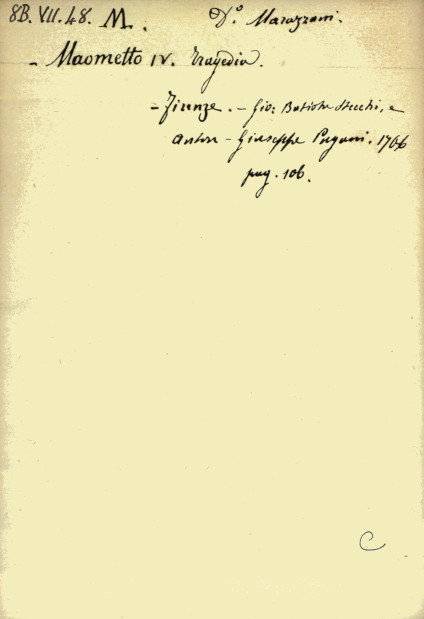 8B. VII. 48. M. D.º Marazzani.
- Maometto IV. Tragedia.
- Firenze. - Gio: Batista Stecchi, e
Anton - Giuseppe Pagani. 1766
pag. 106.
C